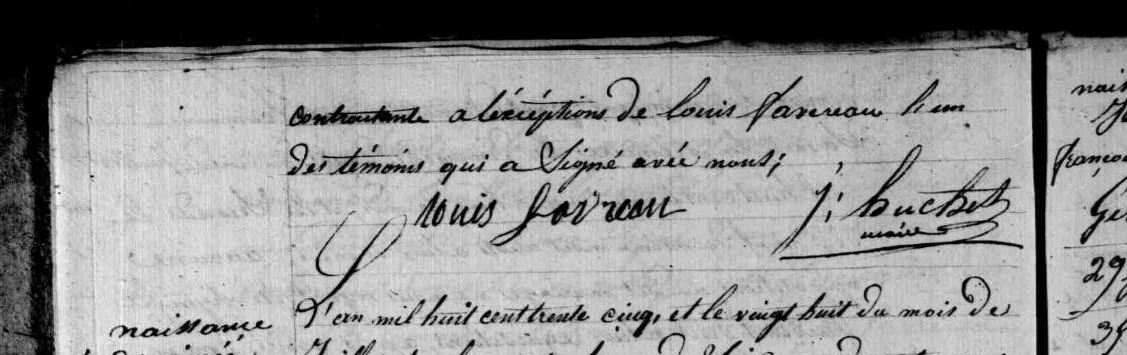 contractante a léxcéptions de louis favereau l'un
des témoins qui a signé avéc nous;
louis favreau J: huchet
maire
naissance
L'an mil huit cent trente cinq, et le vingt huit du mois de
nais
françoi
29
35